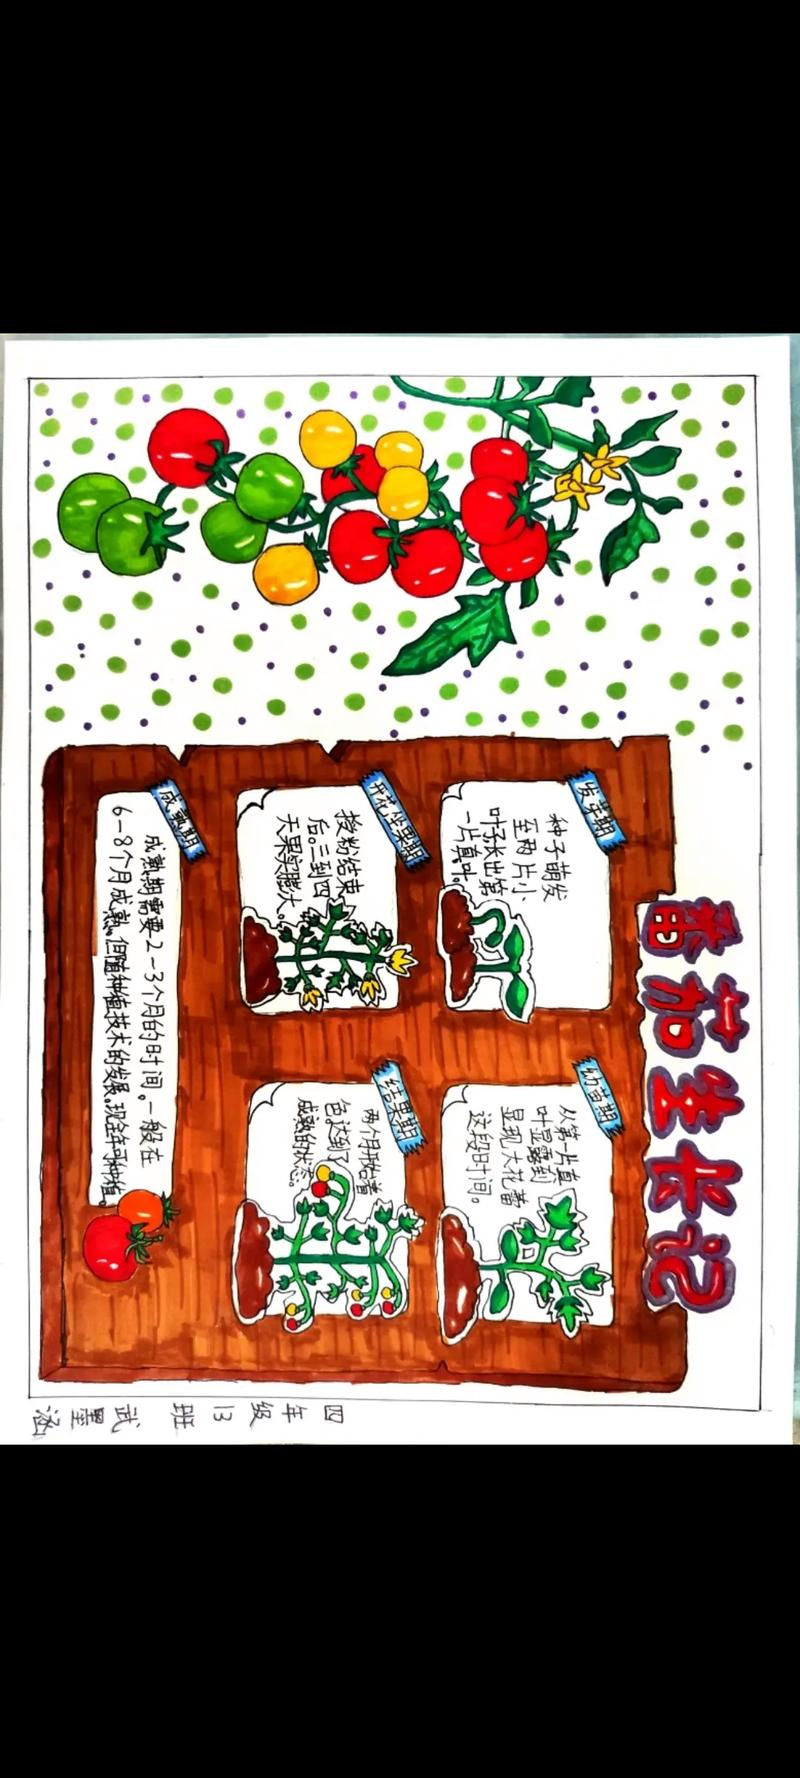 番茄生长记
发芽期
种子萌发
至两片小
叶子长出第
一片真叶。
幼苗期
从第一片真
叶显露到
显现大花蕾
这段时间。
开花坐果期
授粉结束
后。三到四
天果实膨大。
结果期
两个月开始着
色达到了
成熟的状态。
成熟期
成熟期需要2-3个月的时间。一般在
6-8个月成熟。但随种植技术的发展。现全年可种植。
四年级13班 武墨涵